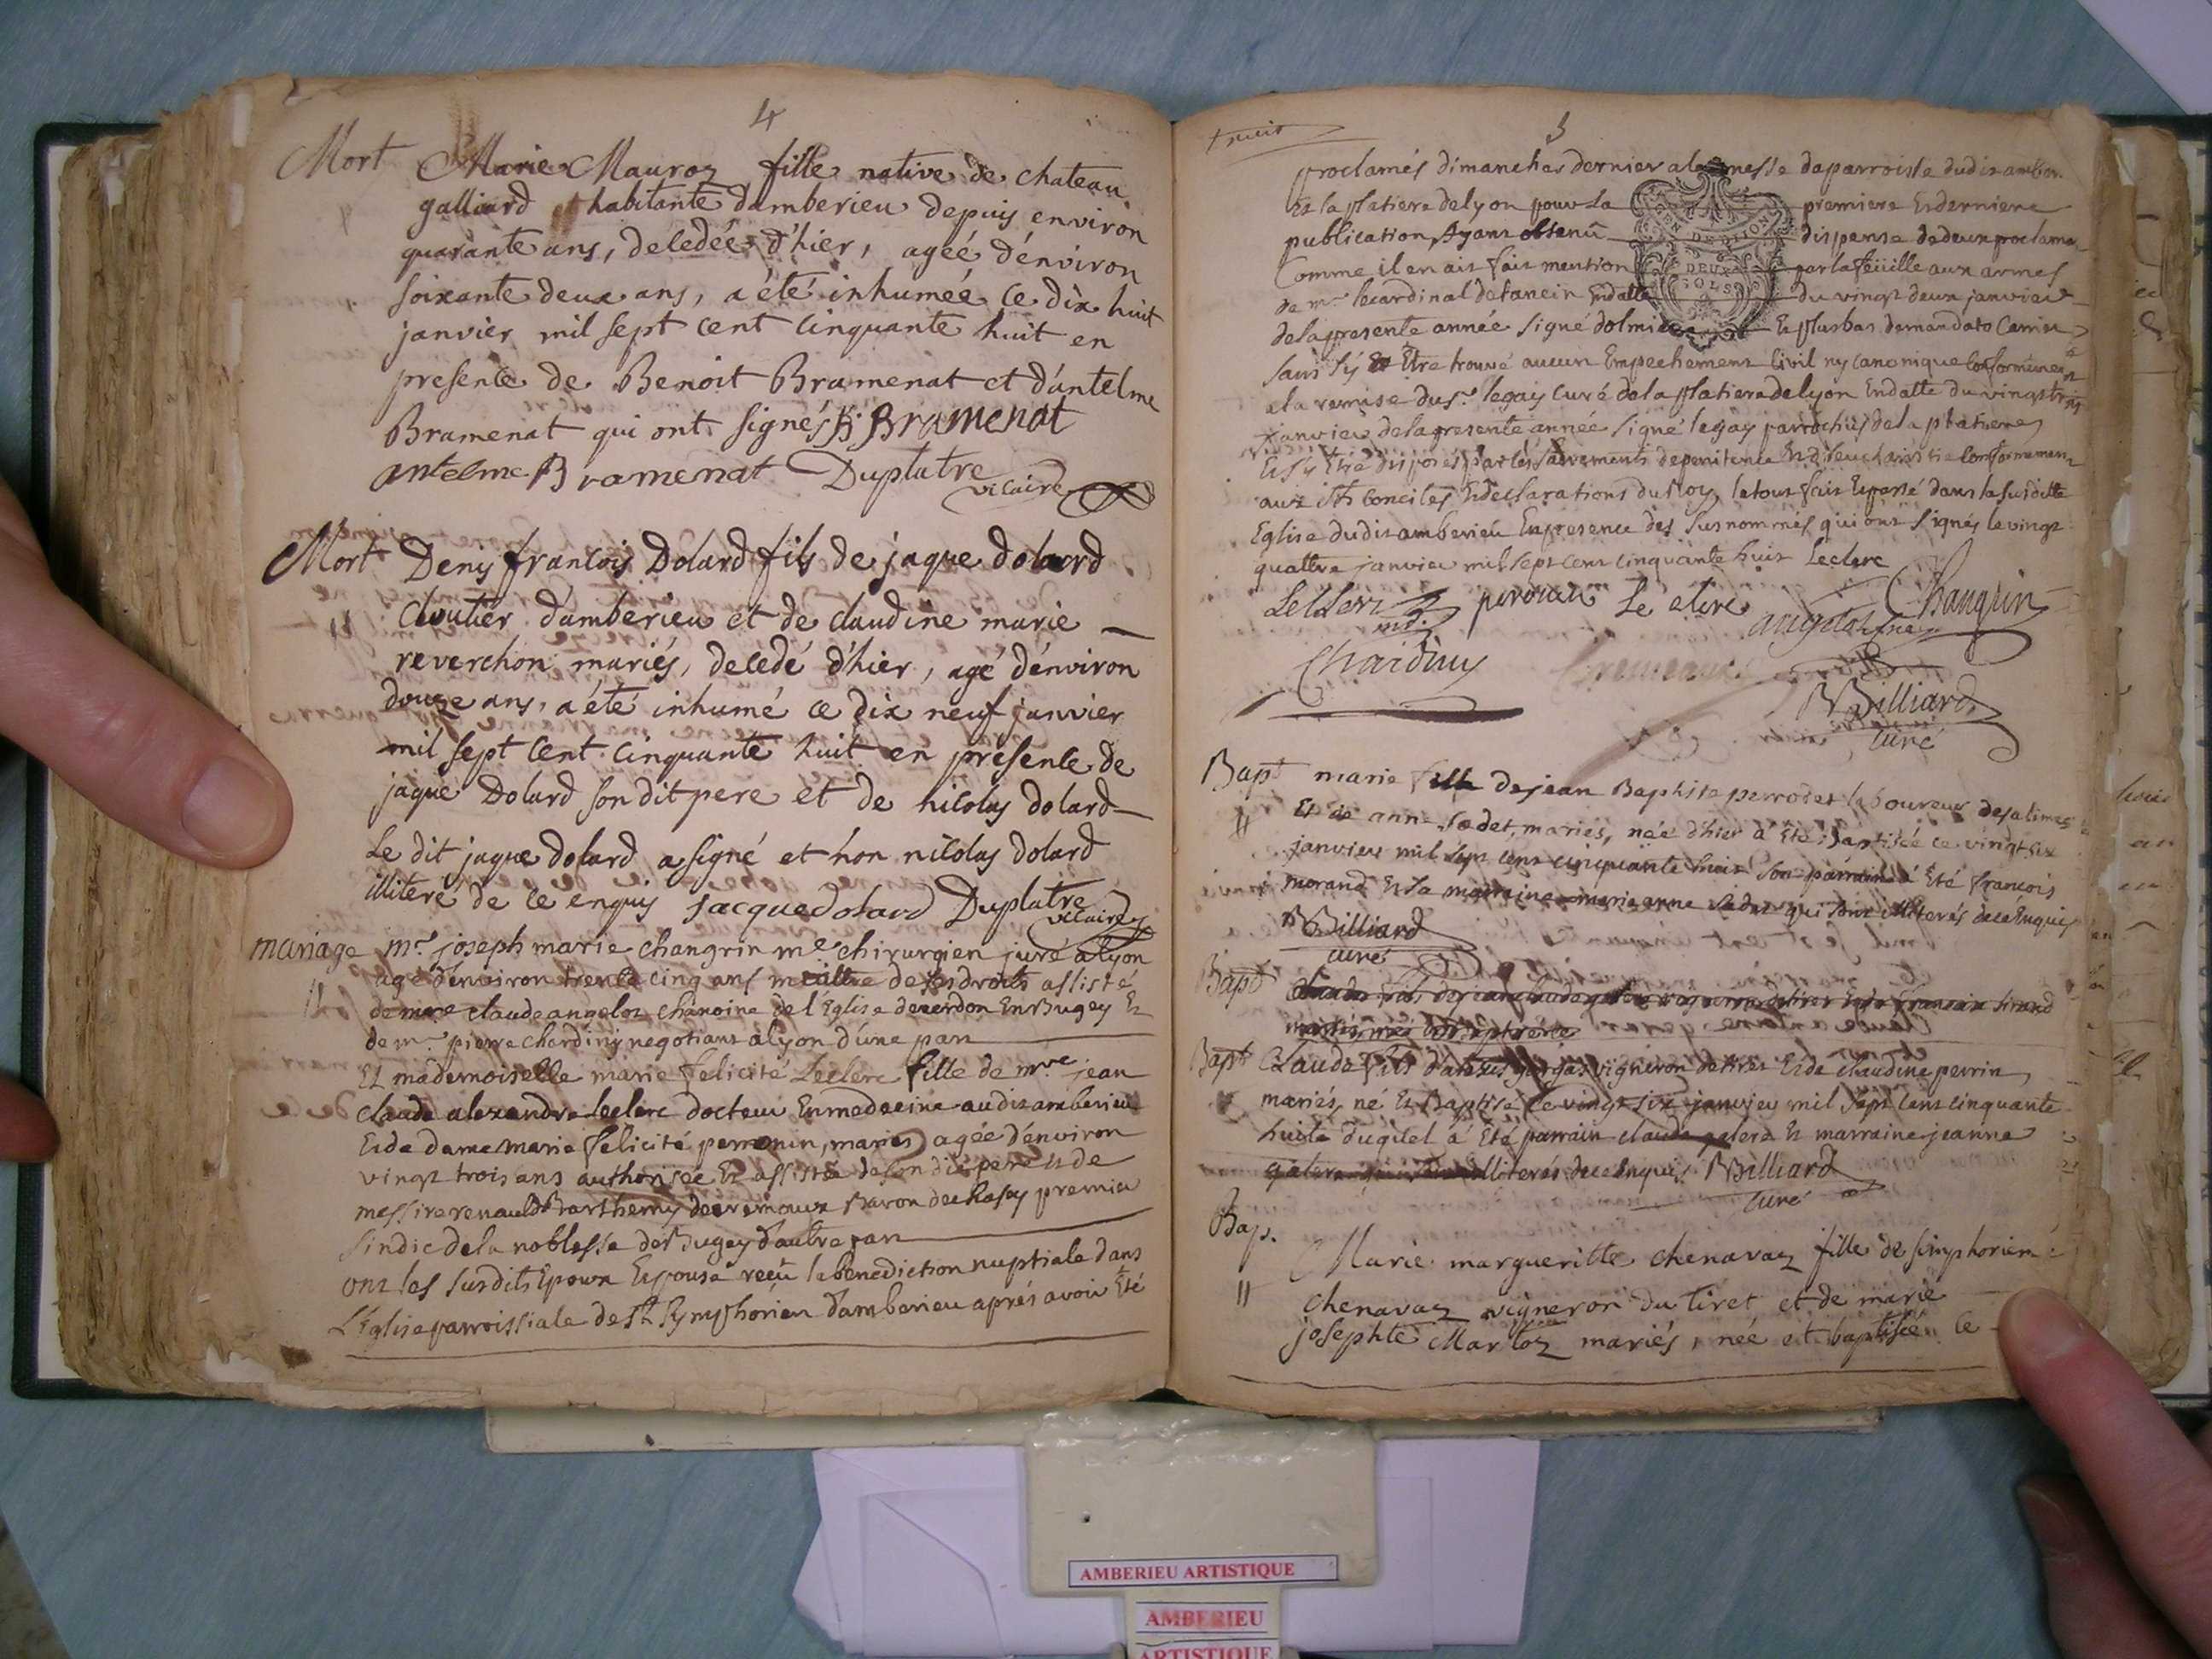 4
Mort Marie Mauroz fille native de chateau
galliard et habitante damberieu depuis environ
quarante ans, decedée d'hier, agéé d'énviron
soixante deux ans, a été inhumeé ce dix huit
janvier mil sept cent cinquante huit en
presence de Benoit Bramenat et d'antelme
Bramenat qui ont signés B. Bramenat
antelme Bramenat Duplatre
vicaire
Mort Denis francois Dolard fils de jaque dolard
cloutier d'amberieu et de claudine marie
reverchon mariés, decedé d'hier, agé d'énviron
douze ans, a été inhumé ce dix neuf janvier
mil sept cent cinquante huit en présence de
jaque Dolard son dit pere et de nicolas dolard
Le dit jaque dolard a signé et non nicolas dolard
illiteré de ce enquis jacque dolard Duplatre
vicaire
mariage mr. joseph marie changrin me chirurgien juré a lyon
agé d'environ trente cinq ans maitre de ses droits assisté
de mre claude angelot chanoine de l'Eglise de Et
de mr. pierre chardiny negotiant a lyon d'une part
Et mademoiselle marie felicité Leclerc fille de mre jean
claude alexandre leclerc docteur En medecine au dit amberieu
Et de dame marie felicité perronin, mariés agée d'énviron
vingt trois ans authorisée Et assistée de son dit pere Et de
messire renauld Barthemy Baron de premier
sindic de la noblesse de Bugey d'autre part
ont les susdits Epoux Espouse reçû la benediction nuptiale dans
L'Eglise parroissiale de St Symphorien d'amberieu aprés avoir Eté
5
proclamés dimanche dernier a la messe de parroisse dudit amber.
Et la platiere de lyon pour la premiere Et derniere
publication, Ayant obtenû dispense de deux proclama.
Comme il en ait fait mention par la feüille aux armes
de mr. le cardinal de tancin En datte du vingt deux janvier
de la presente année signé dolmiere Et plus bas de mandato
sans s'y Etre trouvé aucun Empechement Civil ny canonique conformement
a la remise du sr. legay curé de la platiere de lyon En datte du vingt trois
janvier de la presente année signé legay parrochus de la platiere
Et s'y Etre disposés par les sacrements de penitence Et d'eucharistie conformement
aux sts conciles Et declarations du Roy, le tout fait Et passé dans la susditte
Eglise dudit amberieu En presence des susnommés qui ont signés le vingt
quattre janvier mil sept cent cinquante huit Leclerc
Leclerc Le clerc Changrin
md. angelot
Chardiny
Billiard
curé
Bapt marie fille de jean Baptiste perrodet laboureur
Et de anne , mariés, née d'hier a Eté Baptisée ce vingt six
janvier mil sept cent cinquante huit son parrain a Eté françois
morand Et la marraine marie anne qui sont illiterés de ce Enquis
Billiard
curé
Bapt
Bapt Claude fils d' vigneron de tiret Et de claudine perrin
mariés, né Et Baptisé le vingt six janvier mil sept cent cinquante
huit duquel a Eté parrain claude galera Et marraine jeanne
galera illiterés de ce Enquis Billiard
curé
Bap.
Marie margueritte chenavaz fille de simphorien
chenavaz vigneron du tiret et de marie
josephte Martoz mariés, née et baptisée le
DEUX
SOLS
AMBERIEU ARTISTIQUE
AMBERIEU
ARTISTIQUE